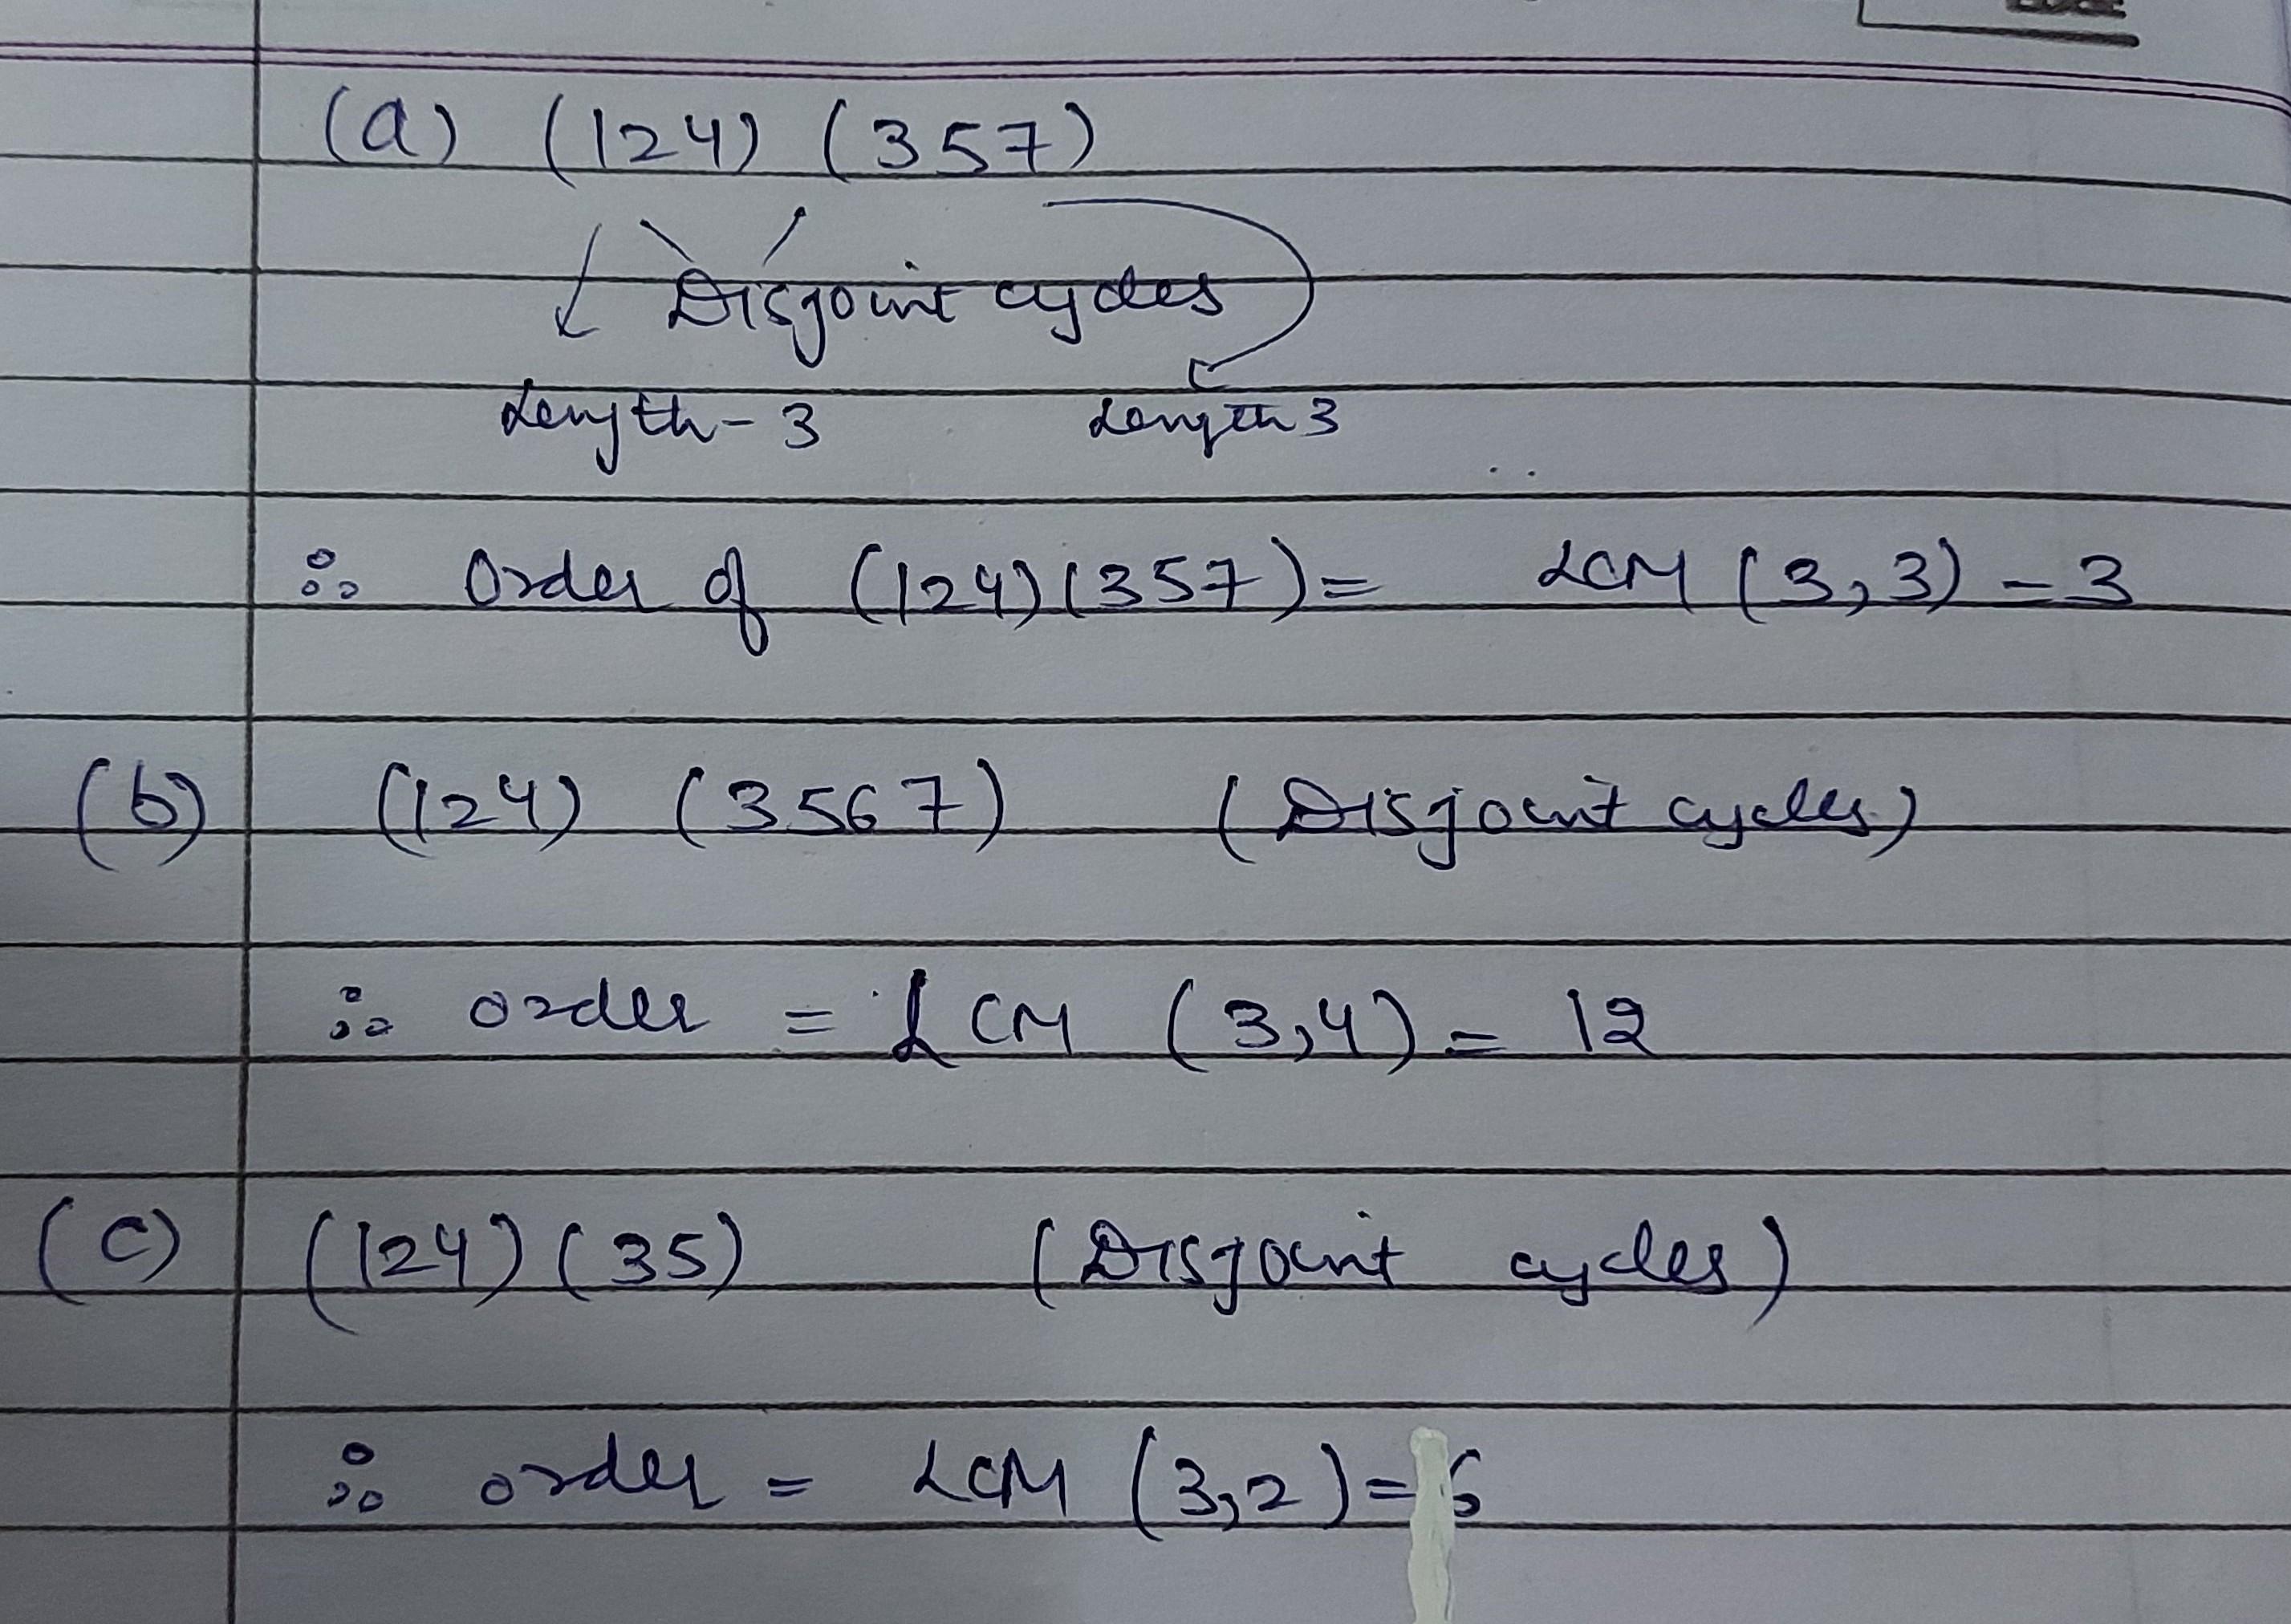 (a) (124) (357)
Disjoint cycles
Length-3 Length 3
∴ Order of (124)(357) = LCM (3,3) = 3
(b) (124) (3567) (Disjoint cycles)
∴ order = LCM (3,4) = 12
(c) (124)(35) (Disjoint cycles)
∴ order = LCM (3,2) = 6